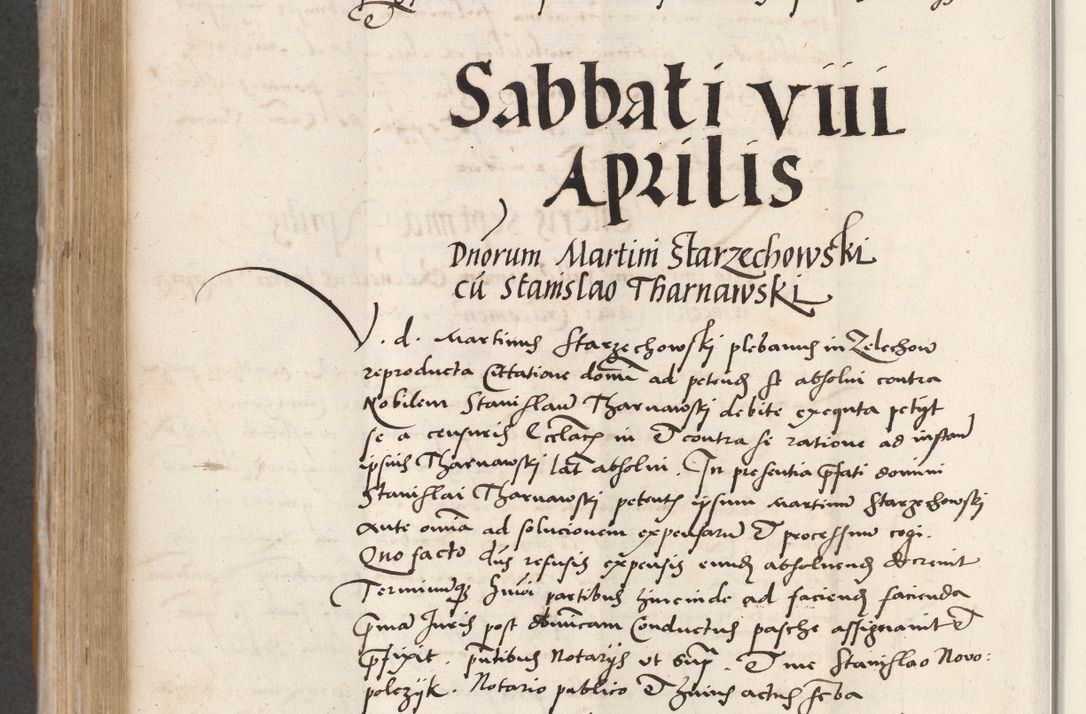 Sabbati VIII
Aprilis
Dnorum Martini Starzechowski
cū Stanislao Tharnawski
V. d. Martinus Starzechowskj plebanus in Zelechow
reproducta Citatione domī ad petend se absolui contra
Nobilem Stanislaū Tharnawskj debite exequta petyt
se a censuris Ecclāz in & contra se ratione ad instan
ipsius Tharnawskj lat absolui. In presentia pfati domini
Stanislai Tharnawskj petent ipsum Martinū Starzechowskj
Ante omīa ad solucionem expensarū & processuū cogi.
Quo facto dūs refusis expensis eund absoluend decreuit
Terminūqz partibus hincinde ad faciend facienda
pma Juris post domīcam Conductus pasche assignauit &
pfixit. pntibus Notarys vt sup. & me Stanislao Novo:
polczyk. Notario publico & huius actus scba